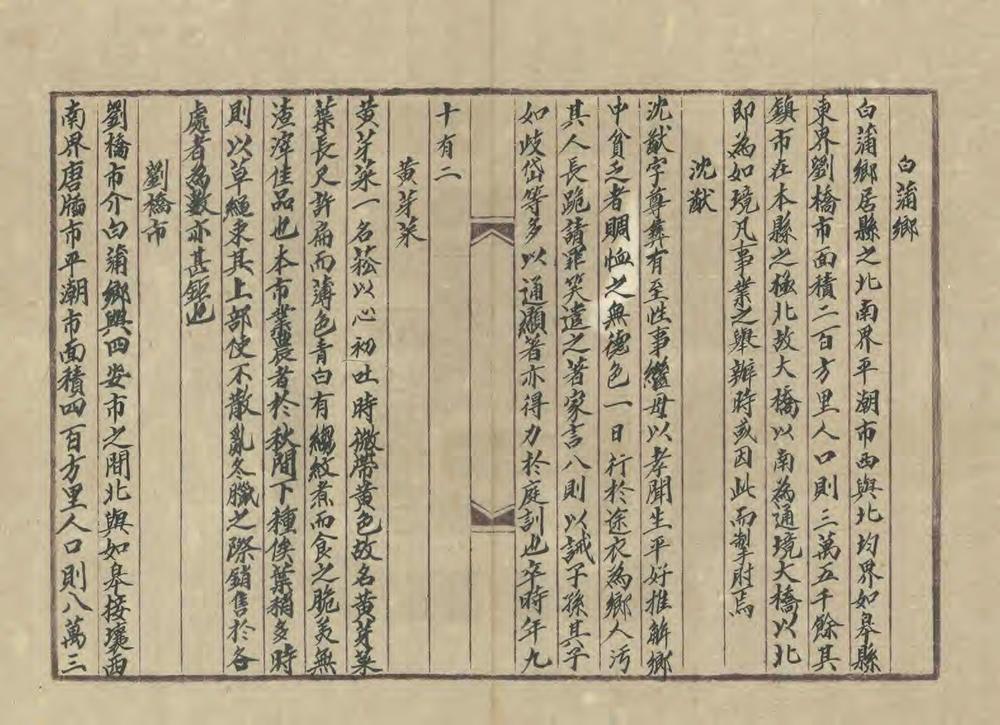 白蒲鄉
白蒲鄉居縣之北南界平潮市西與北均界如皋縣
東界劉橋市面積二百方里人口則三萬五千餘其
鎮市在本縣之極北故大橋以南為通境大橋以北
即為如境凡事業之舉辦時或因此而掣肘焉
沈猷
沈猷字尊彝有至性事繼母以孝聞生平好推解鄉
中貧乏者賙恤之無德色一日行於途衣為鄉人污
其人長跪請罪笑遣之著家言八則以誡子孫其子
如歧岱等多以通顯著亦得力於庭訓也卒時年九
十有二
黃芽菜
黃芽菜一名菘以心初吐時微帶黃色故名黃芽菜
葉長尺許扁而薄色青白有縐紋煮而食之脆美無
渣滓佳品也本市業農者於秋間下種俟葉稍多時
則以草繩束其上部使不散亂冬臘之際銷售於各
處者為數亦甚鉅也
劉橋市
劉橋市介白蒲鄉與四安市之間北與如皋接壤西
南界唐牐市平潮市面積四百方里人口則八萬三